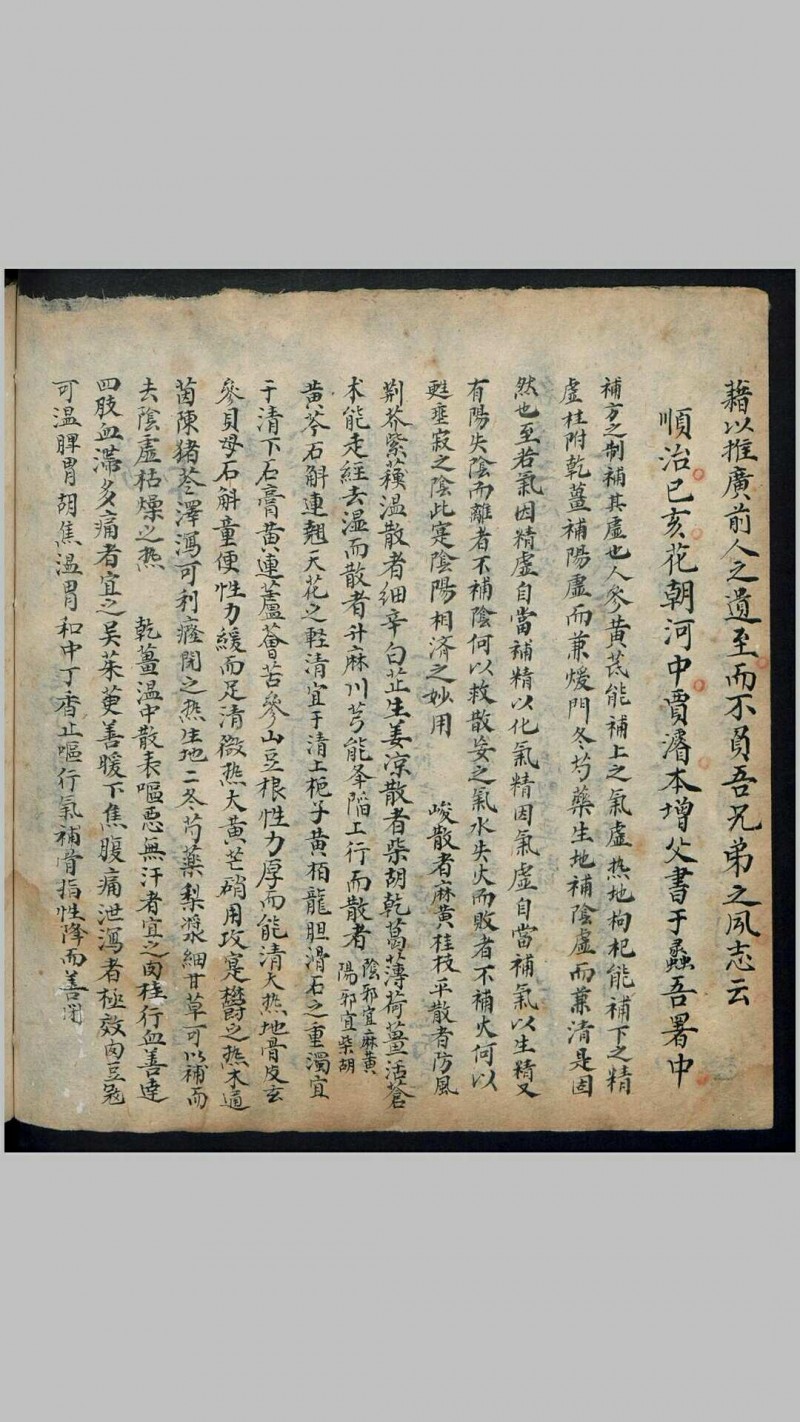 藉以推廣前人之遺至而不負吾兄弟之夙志云
順治己亥花朝河中賈濬本增父書于蠡吾署中
補方之制補其虛也人參黃芪能補上之氣虛熱地枸杞能補下之精
虛桂附乾薑補陽虛而兼煖門冬芍藥生地補陰虛而兼清是固
然也至若氣因精虛自當補精以化氣精因氣虛自當補氣以生精又
有陽失陰而離者不補陰何以救散妄之氣水失火而敗者不補火何以
甦垂寂之陰此寔陰陽相濟之妙用 峻散者麻黃桂枝平散者防風
荆芥紫蘓温散者細辛白芷生姜凉散者柴胡乾葛薄荷薑活蒼
术能走經去湿而散者升麻川芎能夅陷上行而散者陰邪宜麻黃陽邪宜柴胡
黄芩石斛連翹天花之輕清宜于清上梔子黄栢龍胆滑石之重濁宜
于清下石膏黄連蘆薈苦參山豆根性力厚而能清大热地骨皮玄
參貝母石斛童便性力緩而足清微热大黄芒硝用攻寔欝之热木通
茵陳猪苓澤瀉可利癃閉之热生地二冬芍藥梨漿細甘草可以補而
去陰虛枯燥之热 乾薑温中散表嘔惡無汗者宜之肉桂行血善達
四肢血滞多痛者宜之吴茱萸善暖下焦腹痛泄瀉者極效肉豆冦
可温脾胃胡焦温胃和中丁香止嘔行氣補骨指性降而善闭